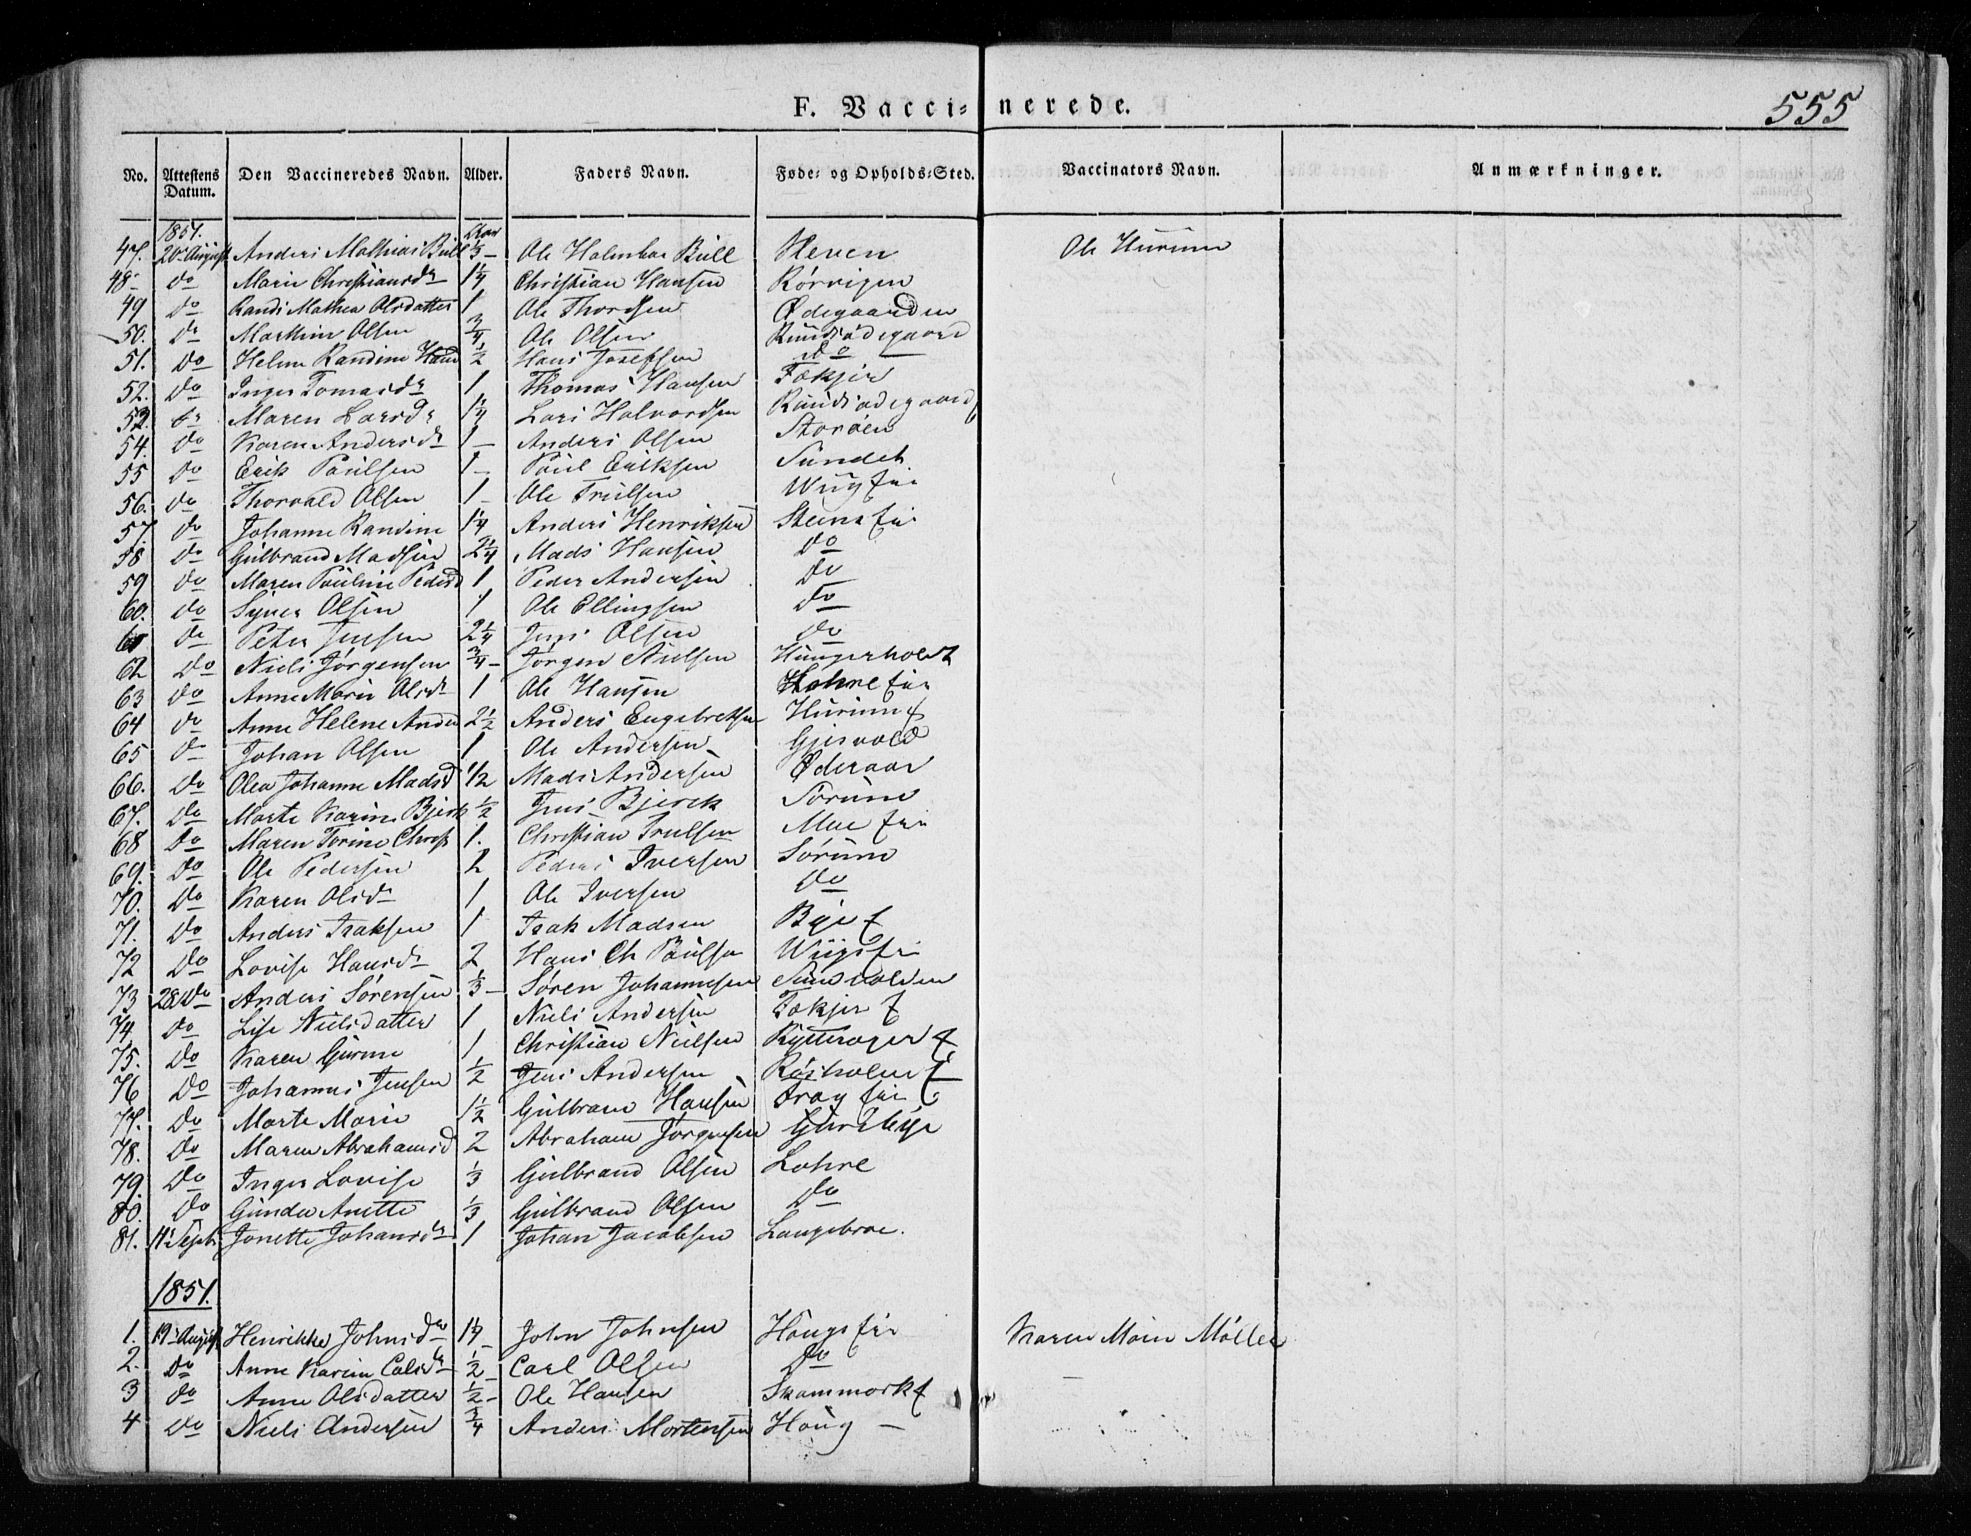 F. Vaccinerede. 555
No. Attestens Datum. Den Vaccineredes Navn. Alder. Faders Navn. Føde- og Opholds-Sted. Vaccinators Navn. Anmærkninger.
1851. Aar
47. 20 August Anders Mathias Bull 1/3 Ole Bull Steen Ole Hurum
48 Do Marie Christiansdr 1 1/4 Christian Hansen Rørvigen
49 Do Randi Mathea Olsdatter 1 Ole Thordsen Ødegaarden
50. Do Marthin Olsen 3/4 Ole Olsen
51. Do Helene Randine 1/2 Hans Josefsen Do
52. Do Inger Tomasdr 1 Thomas Hansen
53. Do Maren Larsdr 1 1/4 Lars Halvordsen
54. Do Karen Andersdr 1 Anders Olsen Storøen
55 Do Erik Paulsen 1 Paul Eriksen Sundet
56. Do Thorvald Olsen 1 Ole Trulsen
57. Do Johanne Randine 1 1/4 Anders Henriksen
58 Do Gulbrand Madsen 2 1/4 Mads Hansen Do
59 Do Maren Pauline Pedersd 1 Peder Andersen Do
60. Do Olsen 1 Ole Ellingsen Do
61 Do Peter Jensen 2 1/4 Jens Olsen Do
62 Do Niels Jørgensen 3/4 Jørgen Nielsen Hungerholdt
63 Do Anne Marie Olsdr 1 Ole Hansen
64 Do Anne Helene Anders 2 1/2 Anders Engebretsen
65 Do Johan Olsen 1 Ole Andersen Gjesvold
66. Do Olea Johanne Madsd 1/2 Mads Andersen
67. Do Marte Karine Bjerk 1/2 Jens Bjerck Sørum
68 Do Maren Torine Christ 1. Christian Trulsen Moe
69. Do Ole Pedersen 2 Peder Iversen Sørum
70. Do Karen Olsdr 1 Ole Iversen Do
71. Do Anders Isaksen 1 Isak Madsen
72 Do Lovise Hansdr 2 Hans Ch Paulsen
73 28 Do Anders Sørensen 1/3 Søren Johannesen Sundvolden
74. Do Lise Nielsdatter 1 Niels Andersen
75. Do Karen Gurine 1 Christian Nielsen
76 Do Johannes Jensen 1/2 Jens Andersen
77. Do Marte Marie 1 1/2 Gulbrand Hansen
78. Do Maren Abrahamsd 2 Abraham Jørgensen
79. Do Inger Lovise 1/3 Gulbrand Olsen Lohre
80. Do Gunda Anette 1/3 Gulbrand Olsen Do
81. 11 Septb Jonette Johansdr 1 Johan Jacobsen Langebroe.
1851.
1. 19 August Henrikke Johnsdr 1 1/4 John Johnsen Karen Marie Møller
2. Do Anne Karine Calsdr 1/2 Carl Olsen Do
3 Do Anne Olsdatter 1/2 Ole Hansen
4 Do Niels Andersen 3/4 Anders Mortensen Houg